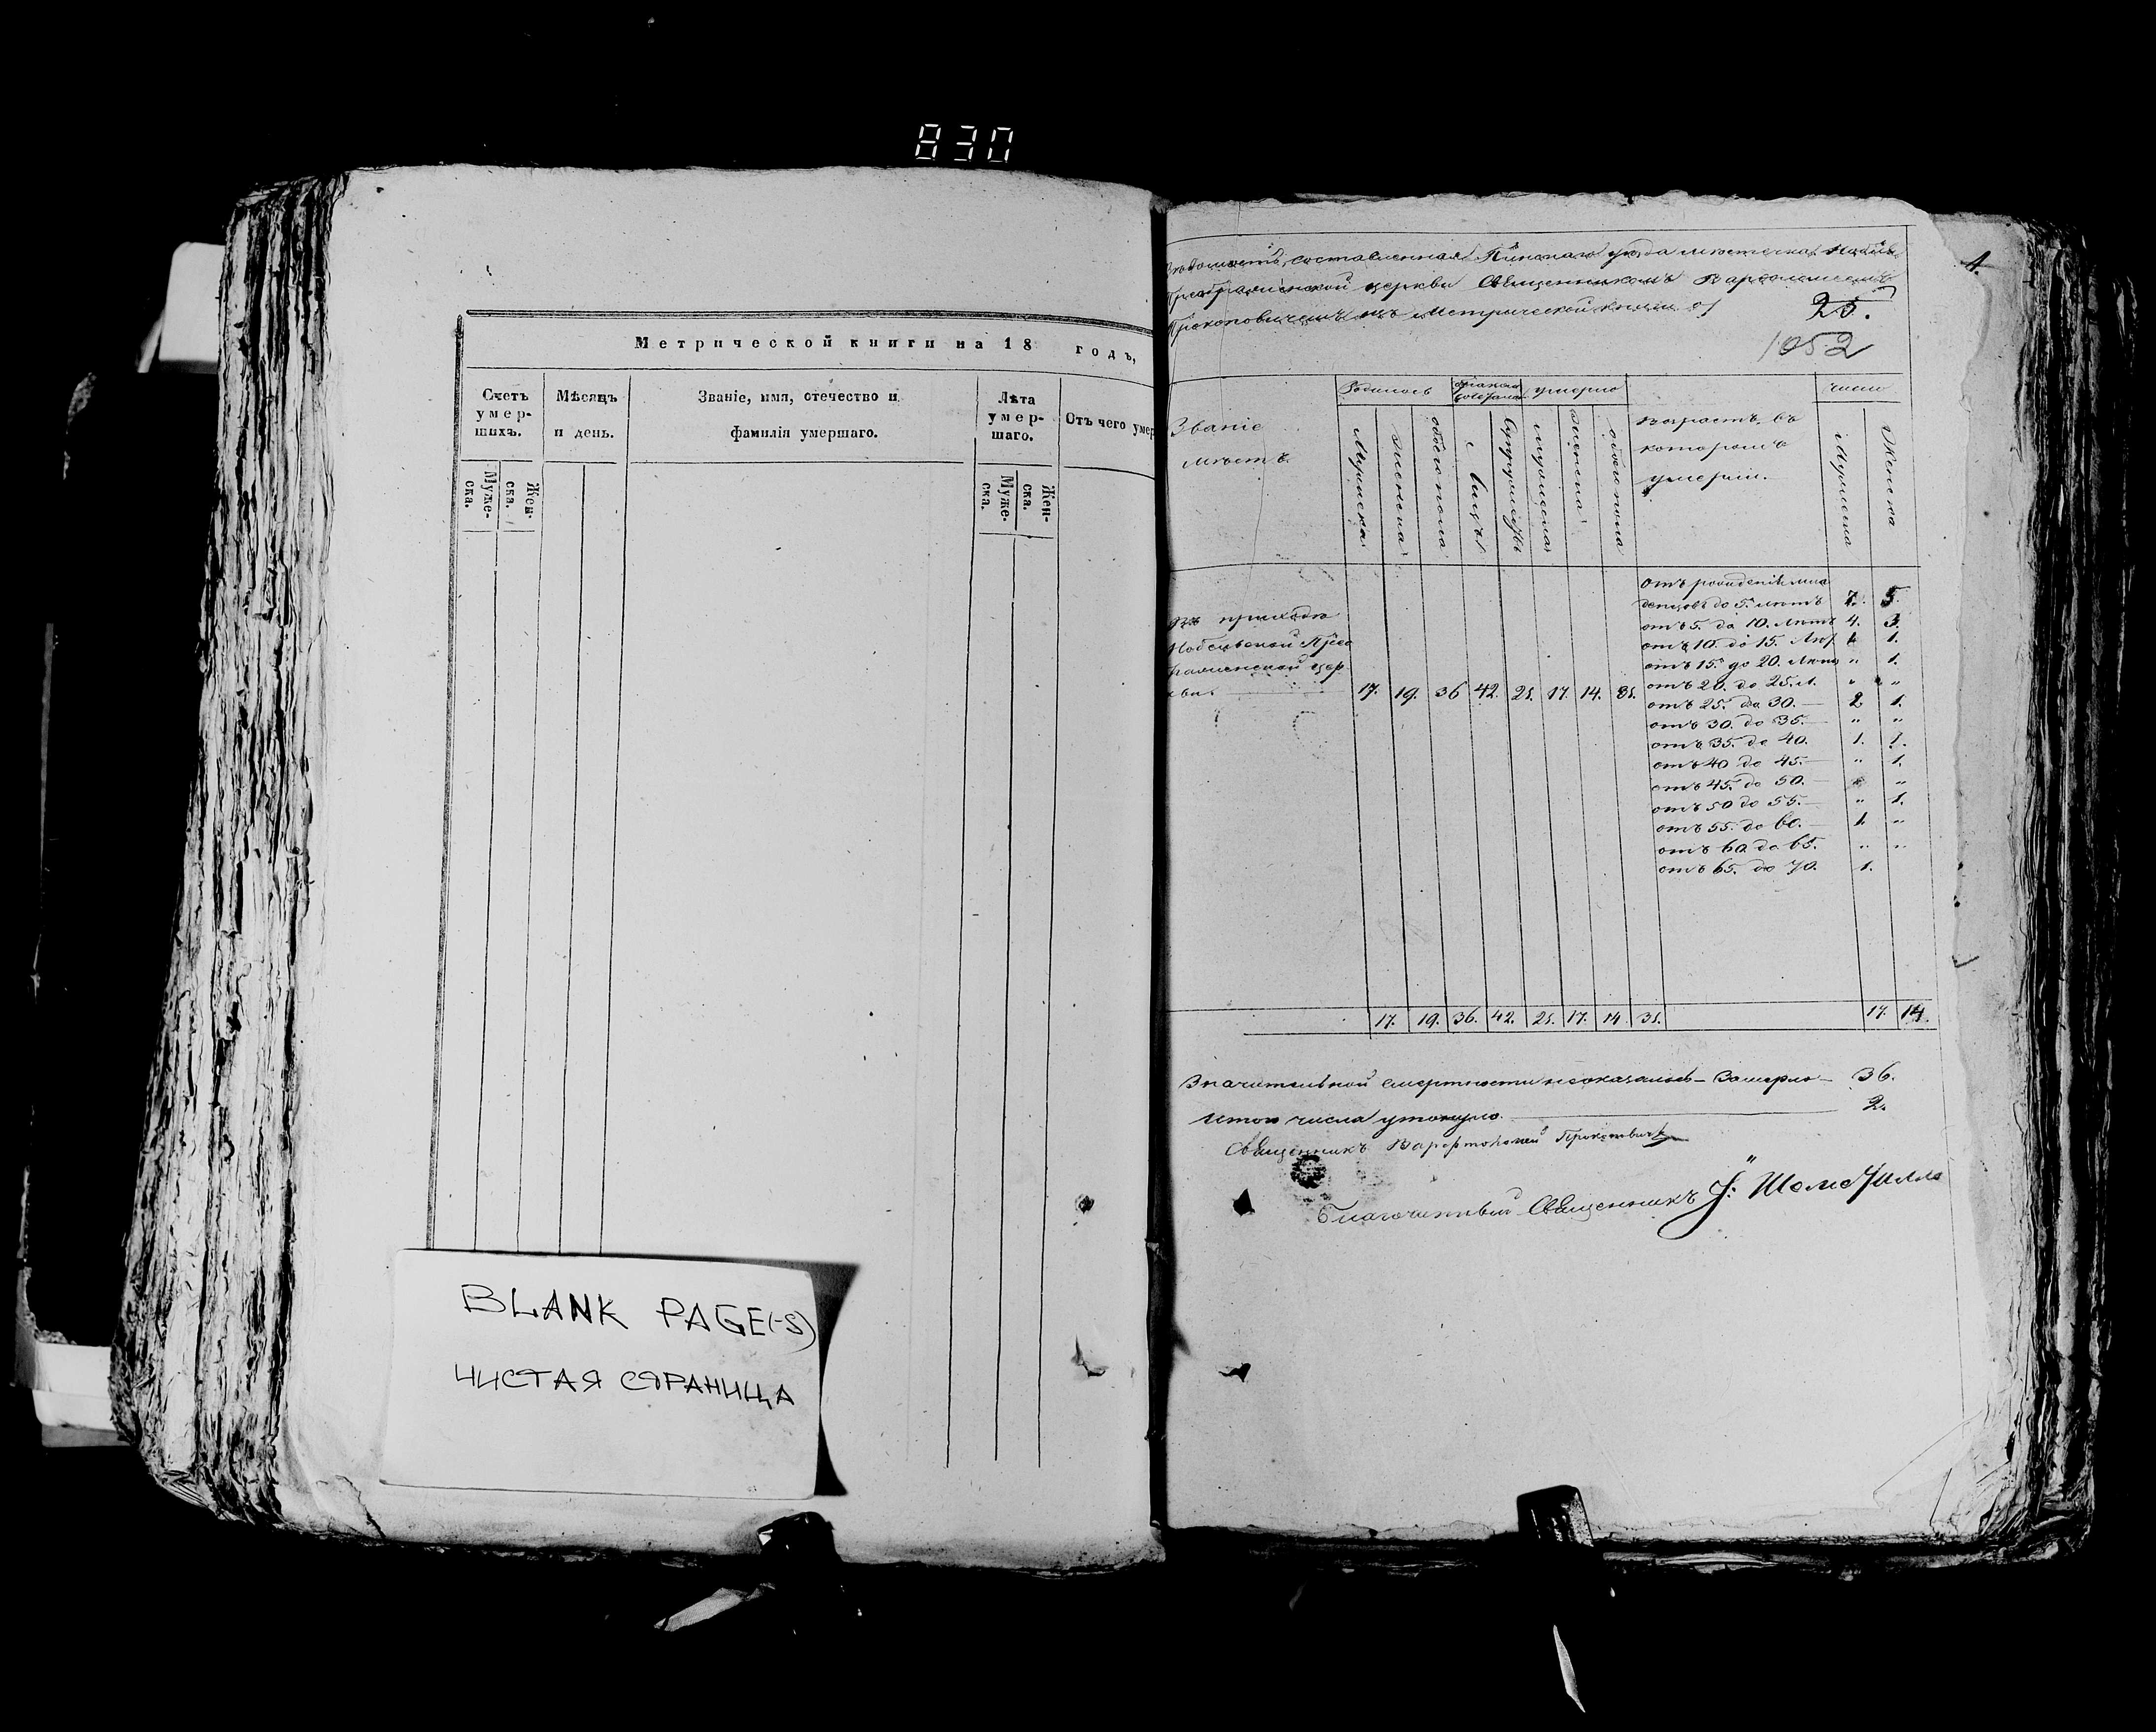 830
Метрической книги на 18 годъ,
Счетъ умер-шихъ.
Мѣсяцъ и день.
Званіе, имя, отечество и фамилія умершаго.
Лѣта умер-шаго.
Отъ чего умер
Муже-ска.
Жен-ска.
Муже-ска.
Жен-ска.
BLANK PAGE(-S)
ЧИСТАЯ СТРАНИЦА
1.
составленная Пинскаго уѣзда мѣстечка
церкви Священникомъ Варѳоломеемъ
Прокоповичемъ изъ Метрической книги
25.
1052
Званіе мѣстъ.
Родилось
умерло
число
Мужеска
женска
обоего пола
Лицъ
Супружествъ
мужеска
женска
обоего пола
возрастъ, въ
которомъ
умерли.
Мужеска
Женска
Въ приходѣ
церкви
17. 19. 36 42. 21. 17. 14. 31.
отъ рожденія мла
денцовъ до 5. лѣтъ 7. 5.
отъ 5. до 10. лѣтъ 4. 3.
отъ 10. до 15. 1.
отъ 15. до 20. " 1.
отъ 20. до 25. л. " "
отъ 25. до 30. — 2 1.
отъ 30. до 35. — " "
отъ 35. до 40. 1. 1.
отъ 40 до 45. — " 1.
отъ 45. до 50. — "
отъ 50 до 55. — " 1.
отъ 55. до 60. — 1. "
отъ 60. до 65. " "
отъ 65. до 70. 1.
17. 19. 36. 42. 21. 17. 14. 31. 17. 14.
Значительной смертности неоказалось — 36.
числа утонуло. 2.
Священникъ Варфоломей Прокоповичъ
Благочинный Священникъ